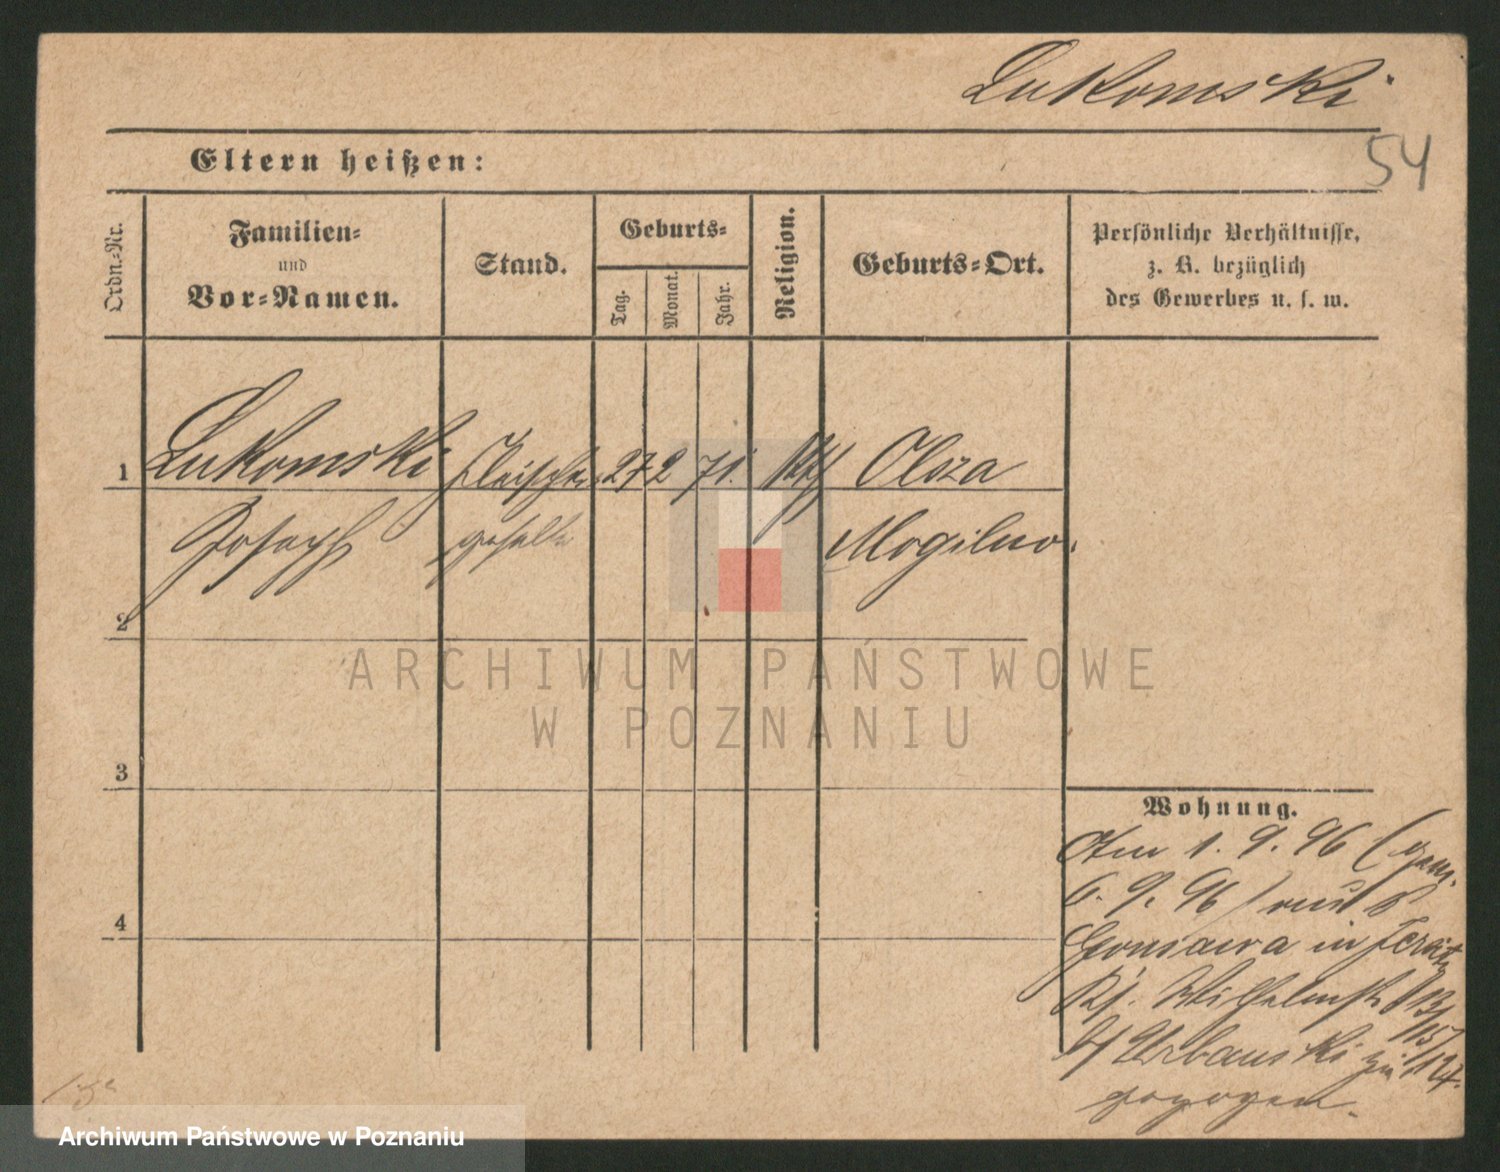 Lukomski
54
Eltern heißen:
Ordn.-Nr.
Familien-
und
Vor-Namen.
Stand.
Geburts-
Tag.
Monat.
Jahr.
Religion.
Geburts-Ort.
Persönliche Verhältnisse,
z. B. bezüglich
des Gewerbes u. s. w.
1 Lukomski Fleischer 27 2 71. Kth Olsza
Joseph geselle Mogilno.
2
3
4
Wohnung.
Am 1. 9. 96 (gem.
6. 9. 96) aus
Gonsawa in Jersitz
Wilhelmstr 13/
15/
b/ Urbanski zu 124.
gezogen.
ARCHIWUM PAŃSTWOWE
W POZNANIU
Archiwum Państwowe w Poznaniu